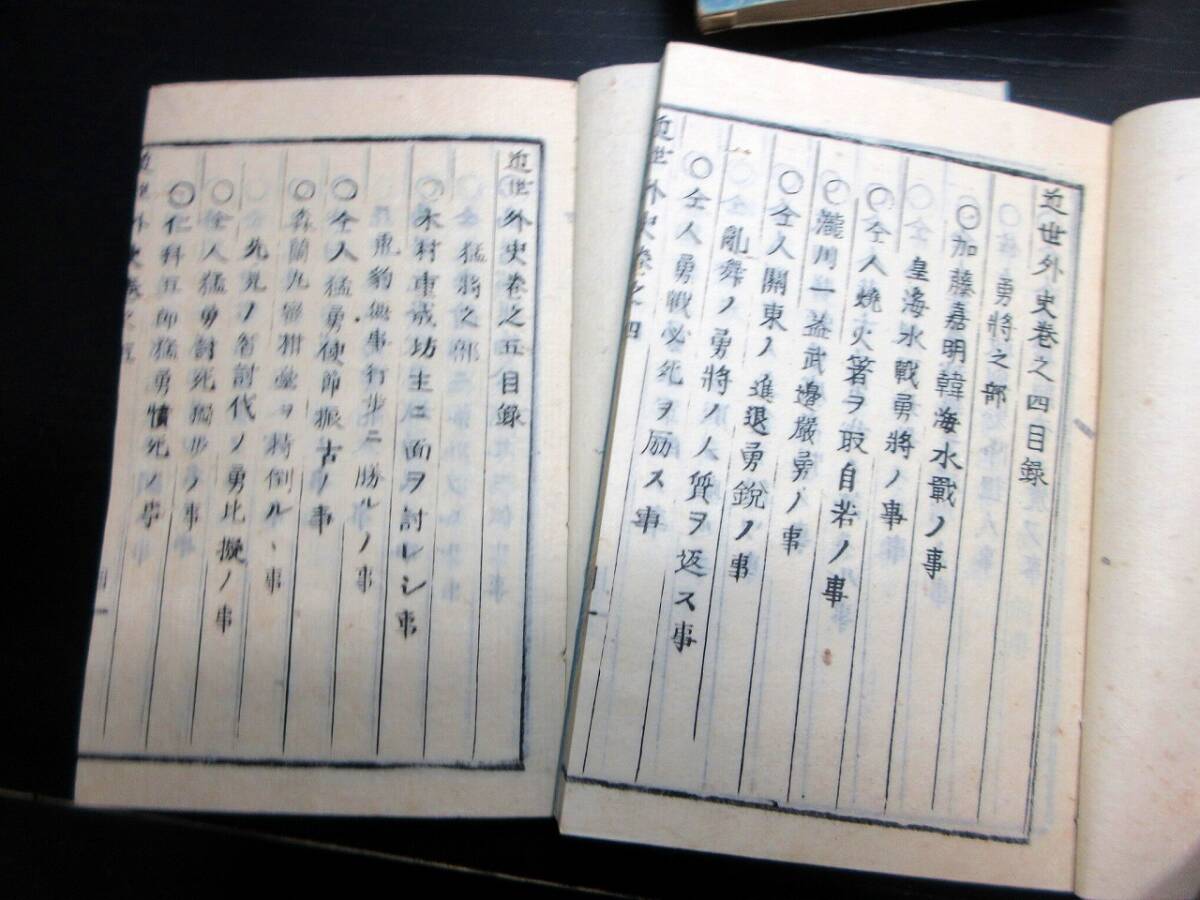 近世外史巻之四目録
勇將之部
○加藤嘉明韓海水戰ノ事
皇海水戰勇將ノ事
○仝人燒火箸ヲ取自若ノ事
○瀧川一益武邊嚴勇ノ事
○仝人關東ノ進退勇鋭ノ事
亂舞ノ勇將ノ人質ヲ返ス事
○仝人勇戰必死ヲ励ス事
近世外史巻之四
近世外史巻之五目録
猛將之部
○木村重成坊主ニ面ヲ討レシ事
虎豹無事行非ニ勝ルノ事
○仝人猛勇使節振古ノ事
○森蘭丸
ノ討代ノ勇比擬ノ事
○仝人猛勇討死
○仁科五郎猛勇憤死ノ事
近世外史巻之五